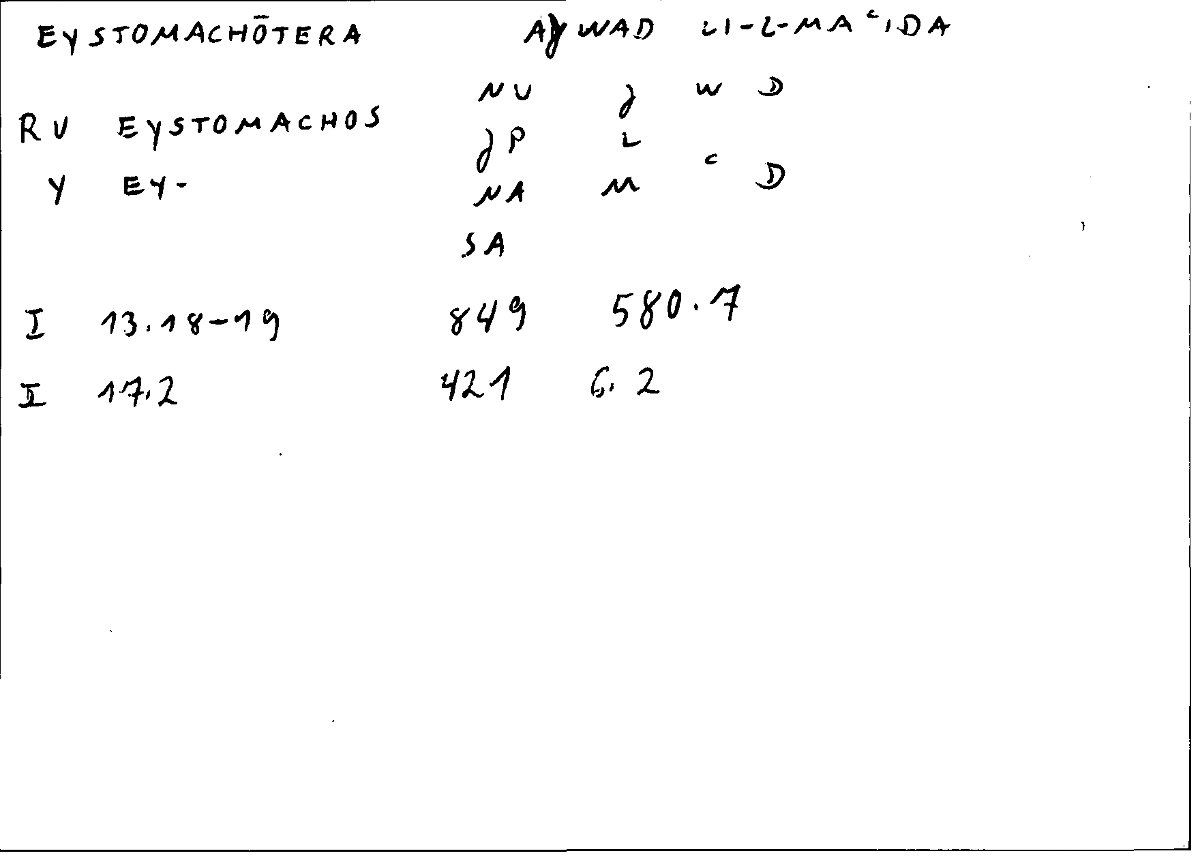 EYSTOMACHŌTERA AǧWAD LI-L-MAʿIDA
NU ǧ W D
RU EYSTOMACHOS ǧP L
Y EY- NA M ʿ D
SA
I 13.18-19 849 580.7
II 17.2 421 6.2